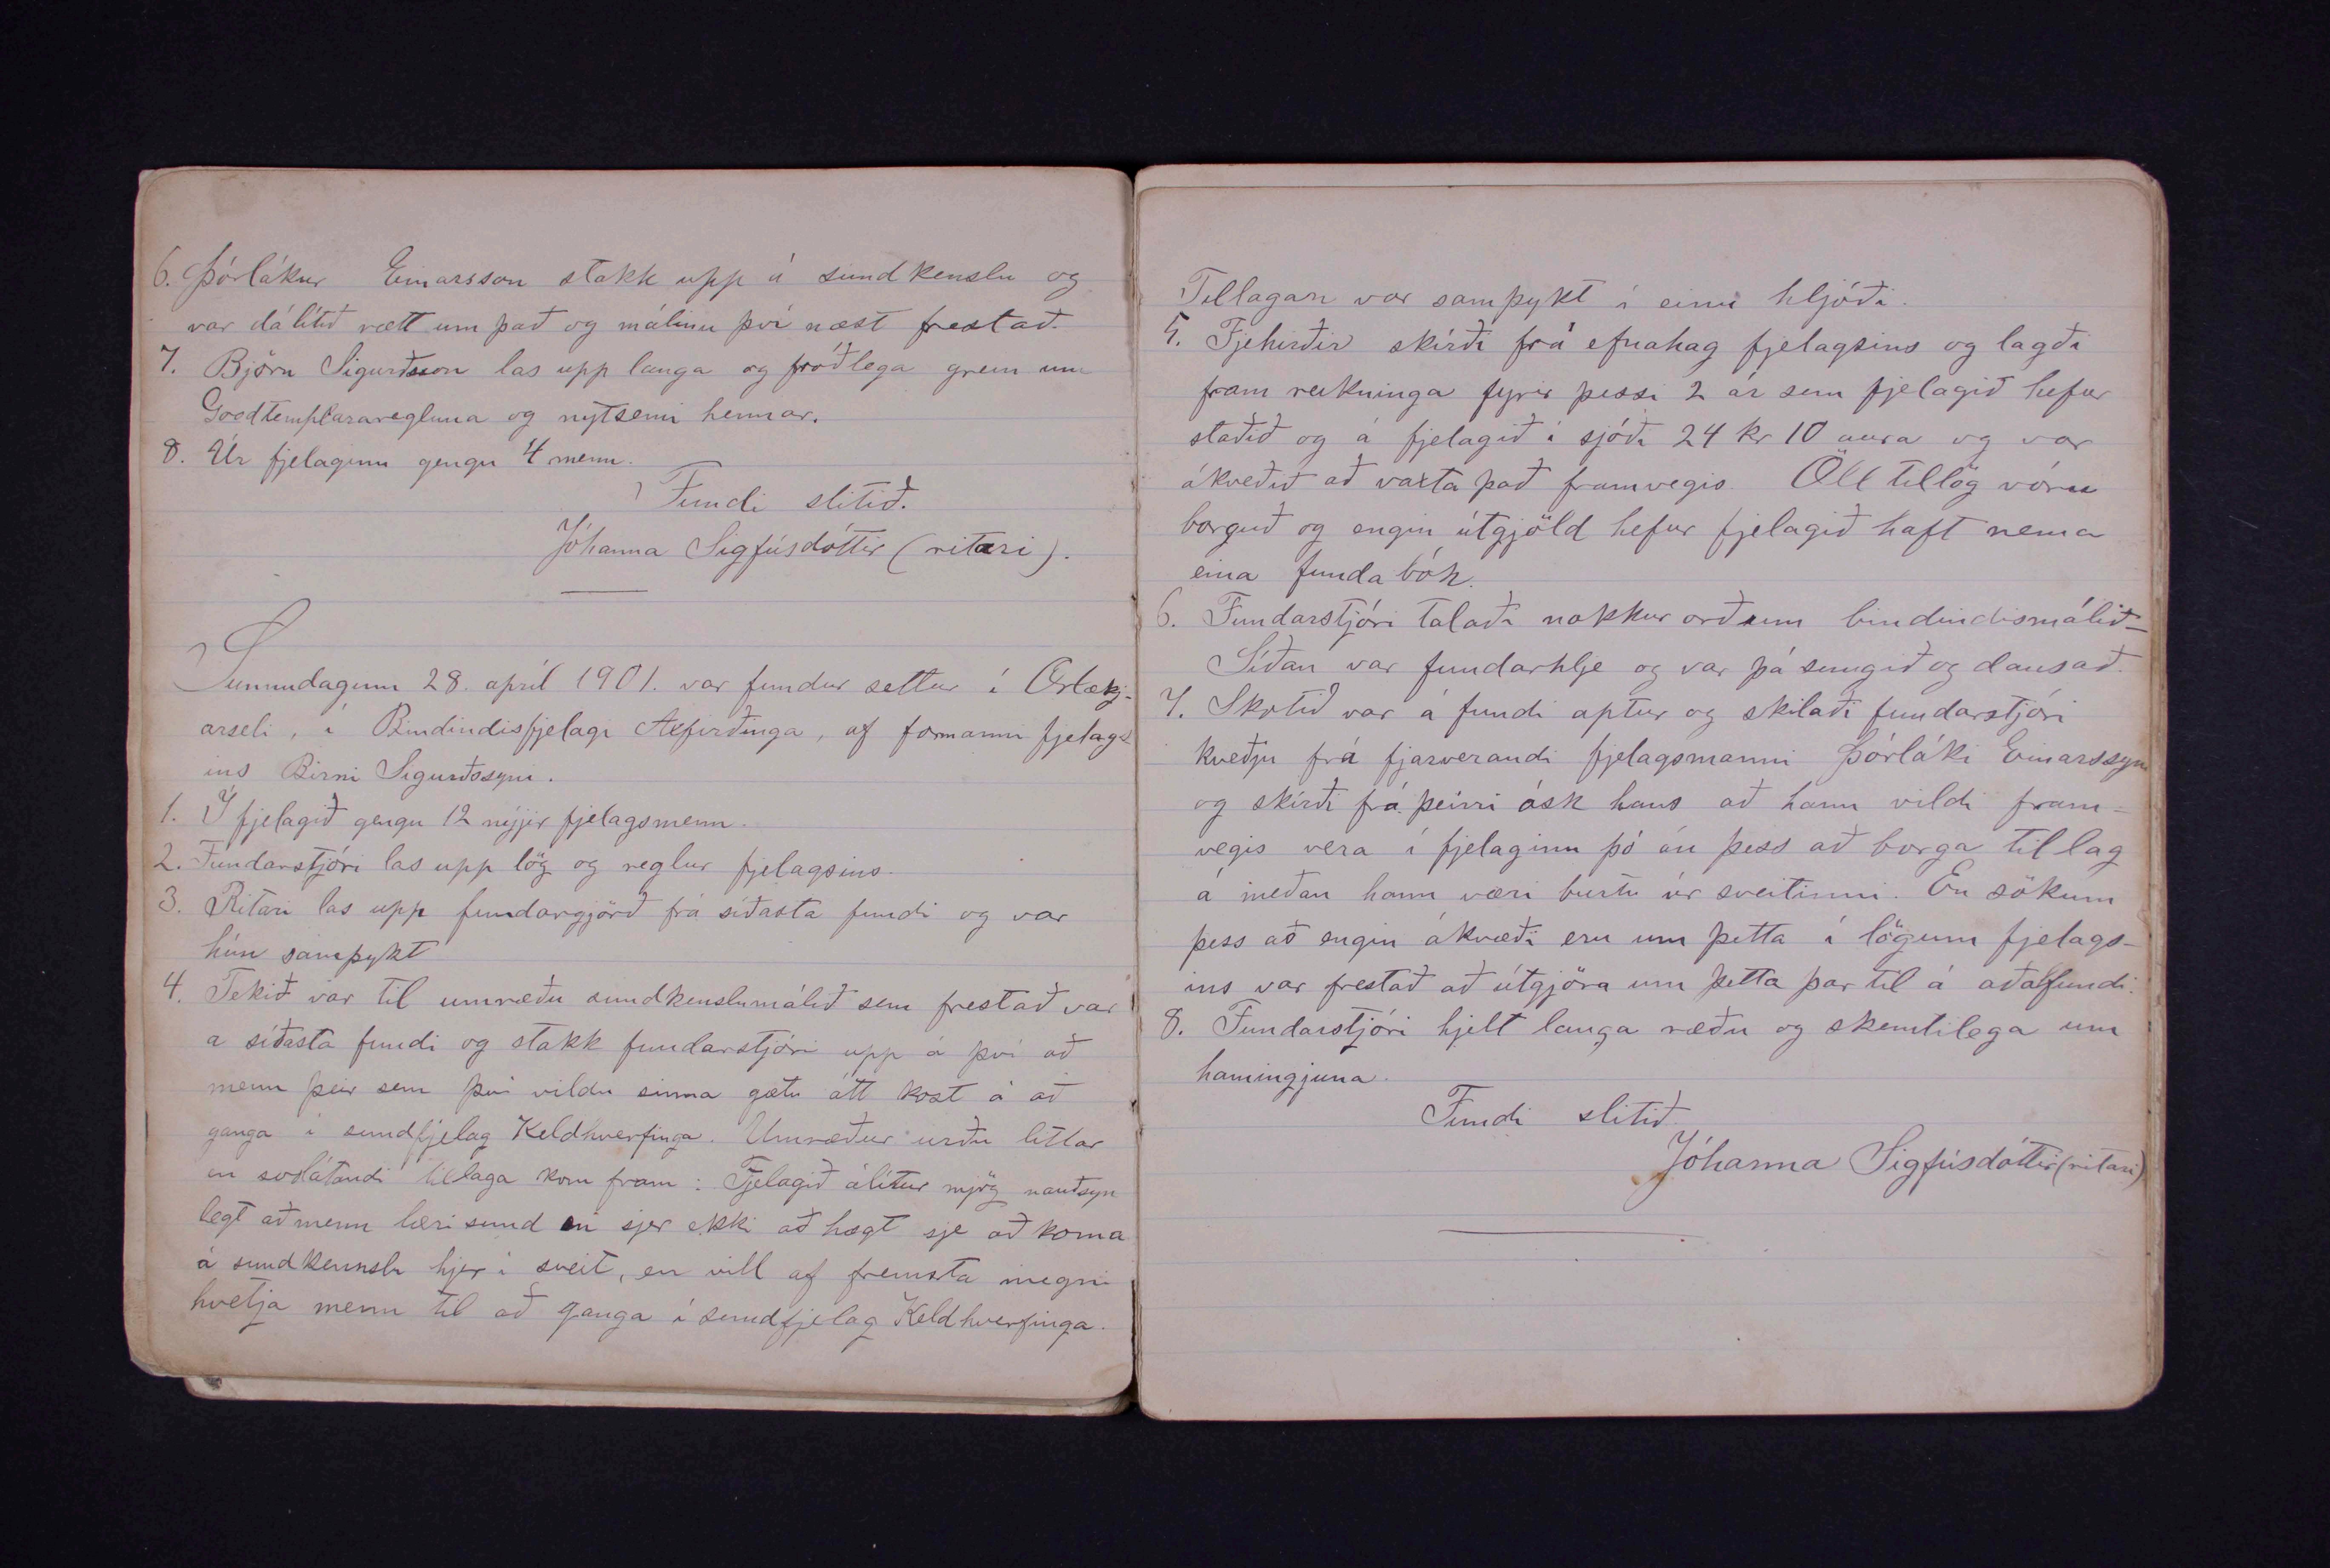 6. Þórlákur Einarsson stakk upp á sundkenslu og
var dálítið rætt um það og málinu því næst frestað.
7. Björn Sigurðsson las upp langa og fróðlega grein um
Goodtemplararegluna og nytsemi hennar.
8. Úr fjelaginu gengu 4 menn.
Fundi slitið.
Jóhanna Sigfúsdóttir (ritari).
Sunnudaginn 28. apríl 1901. var fundur settur í Ærlækj-
arseli, í Bindindisfjelagi Axfirðinga, af formanni fjelags
ins Birni Sigurðssyni.
1. Í fjelagið gengu 12 nýjir fjelagsmenn.
2. Fundarstjóri las upp lög og reglur fjelagsins.
3. Ritari las upp fundargjörð frá síðasta fundi og var
hún samþykt
4. Tekið var til umræðu sundkenslumálið sem frestað var
a síðasta fundi og stakk fundarstjóri upp á því að
menn þeir sem því vildu sinna gætu átt kost á að
ganga í sundfjelag Keldhverfinga. Umræður urðu litlar
en svolátandi tillaga kom fram: Fjelagið álítur mjög nauðsyn
legt að menn læri sund en sjer ekki að hægt sje að koma
á sundkennslu hjer í sveit, en vill af fremsta megni
hvetja menn til að ganga í sundfjelag Keldhverfinga.
Tillagan var samþykt í einu hljóði.
5. Fjehirðir skírði frá efnahag fjelagsins og lagði
fram reikninga fyrir þessi 2 ár sem fjelagið hefur
staðið og á fjelagið í sjóði 24 kr 10 aura og var
ákveðið að vaxta það framvegis. Öll tillög vóru
borguð og engin útgjöld hefur fjelagið haft nema
eina fundabók.
6. Fundarstjóri talaði nokkur orð um bindindismálið-
Síðan var fundarhlje og var þá sungið og dansað.
7. Skotið var á fundi aptur og skilaði fundarstjóri
kveðju frá fjarverandi fjelagsmanni Þórláki Einarssyni
og skírði frá þeirri ósk hans að hann vildi fram-
vegis vera í fjelaginu þó án þess að borga tillag
á meðan hann væri burtu úr sveitinni. En sökum
þess að engin ákvæði eru um þetta í lögum fjelags-
ins var frestað að útgjöra um þetta þar til á aðalfundi.
8. Fundarstjóri hjelt langa ræðu og skemtilega um
hamingjuna.
Fundi slitið.
Jóhanna Sigfúsdóttir (ritari)